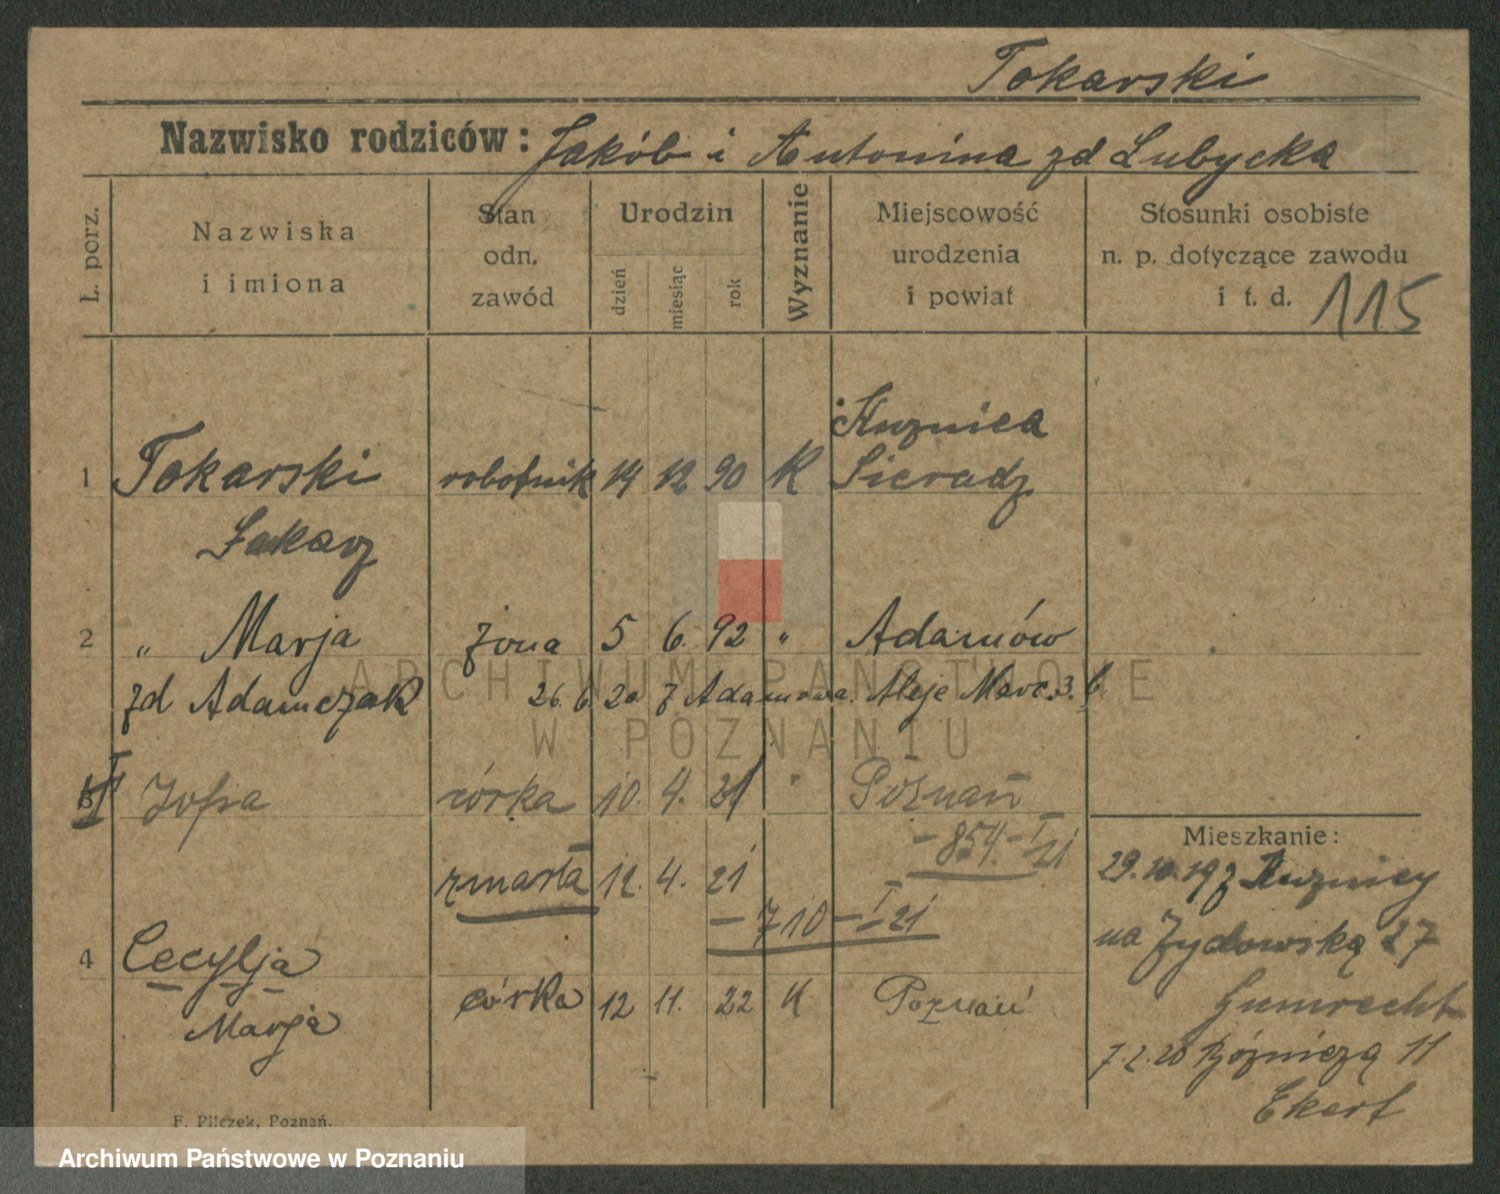 Tokarski
Nazwisko rodziców: Jakób i Antonina zd Lubycka
L. porz.
Nazwiska i imiona
Stan odn. zawód
Urodzin
dzień miesiąc rok
Wyznanie
Miejscowość urodzenia i powiat
Stosunki osobiste n. p. dotyczące zawodu i t. d. 115
Kuznica
1 Tokarski robotnik 14 12 90 K Sieradz
Łukasz
2 " Marja żona 5 6. 92 " Adamów
zd Adamczak 26. 6. 20 z Adamowa. Aleje Marc. 3. 6
I Zofia córka 10. 4. 21 " Poznań
- 854 - I 21
zmarła 12. 4. 21
- 710 - I 21
4 Cecylja
Marja córka 12 11. 22 K Poznań
Mieszkanie:
29.10.19 z Kuznicy
na Żydowską 27
Gumrecht
7.2.20 Bóżniczą 11
Ekert
F. Pilczek, Poznań.
ARCHIWUM PAŃSTWOWE
W POZNANIU
Archiwum Państwowe w Poznaniu